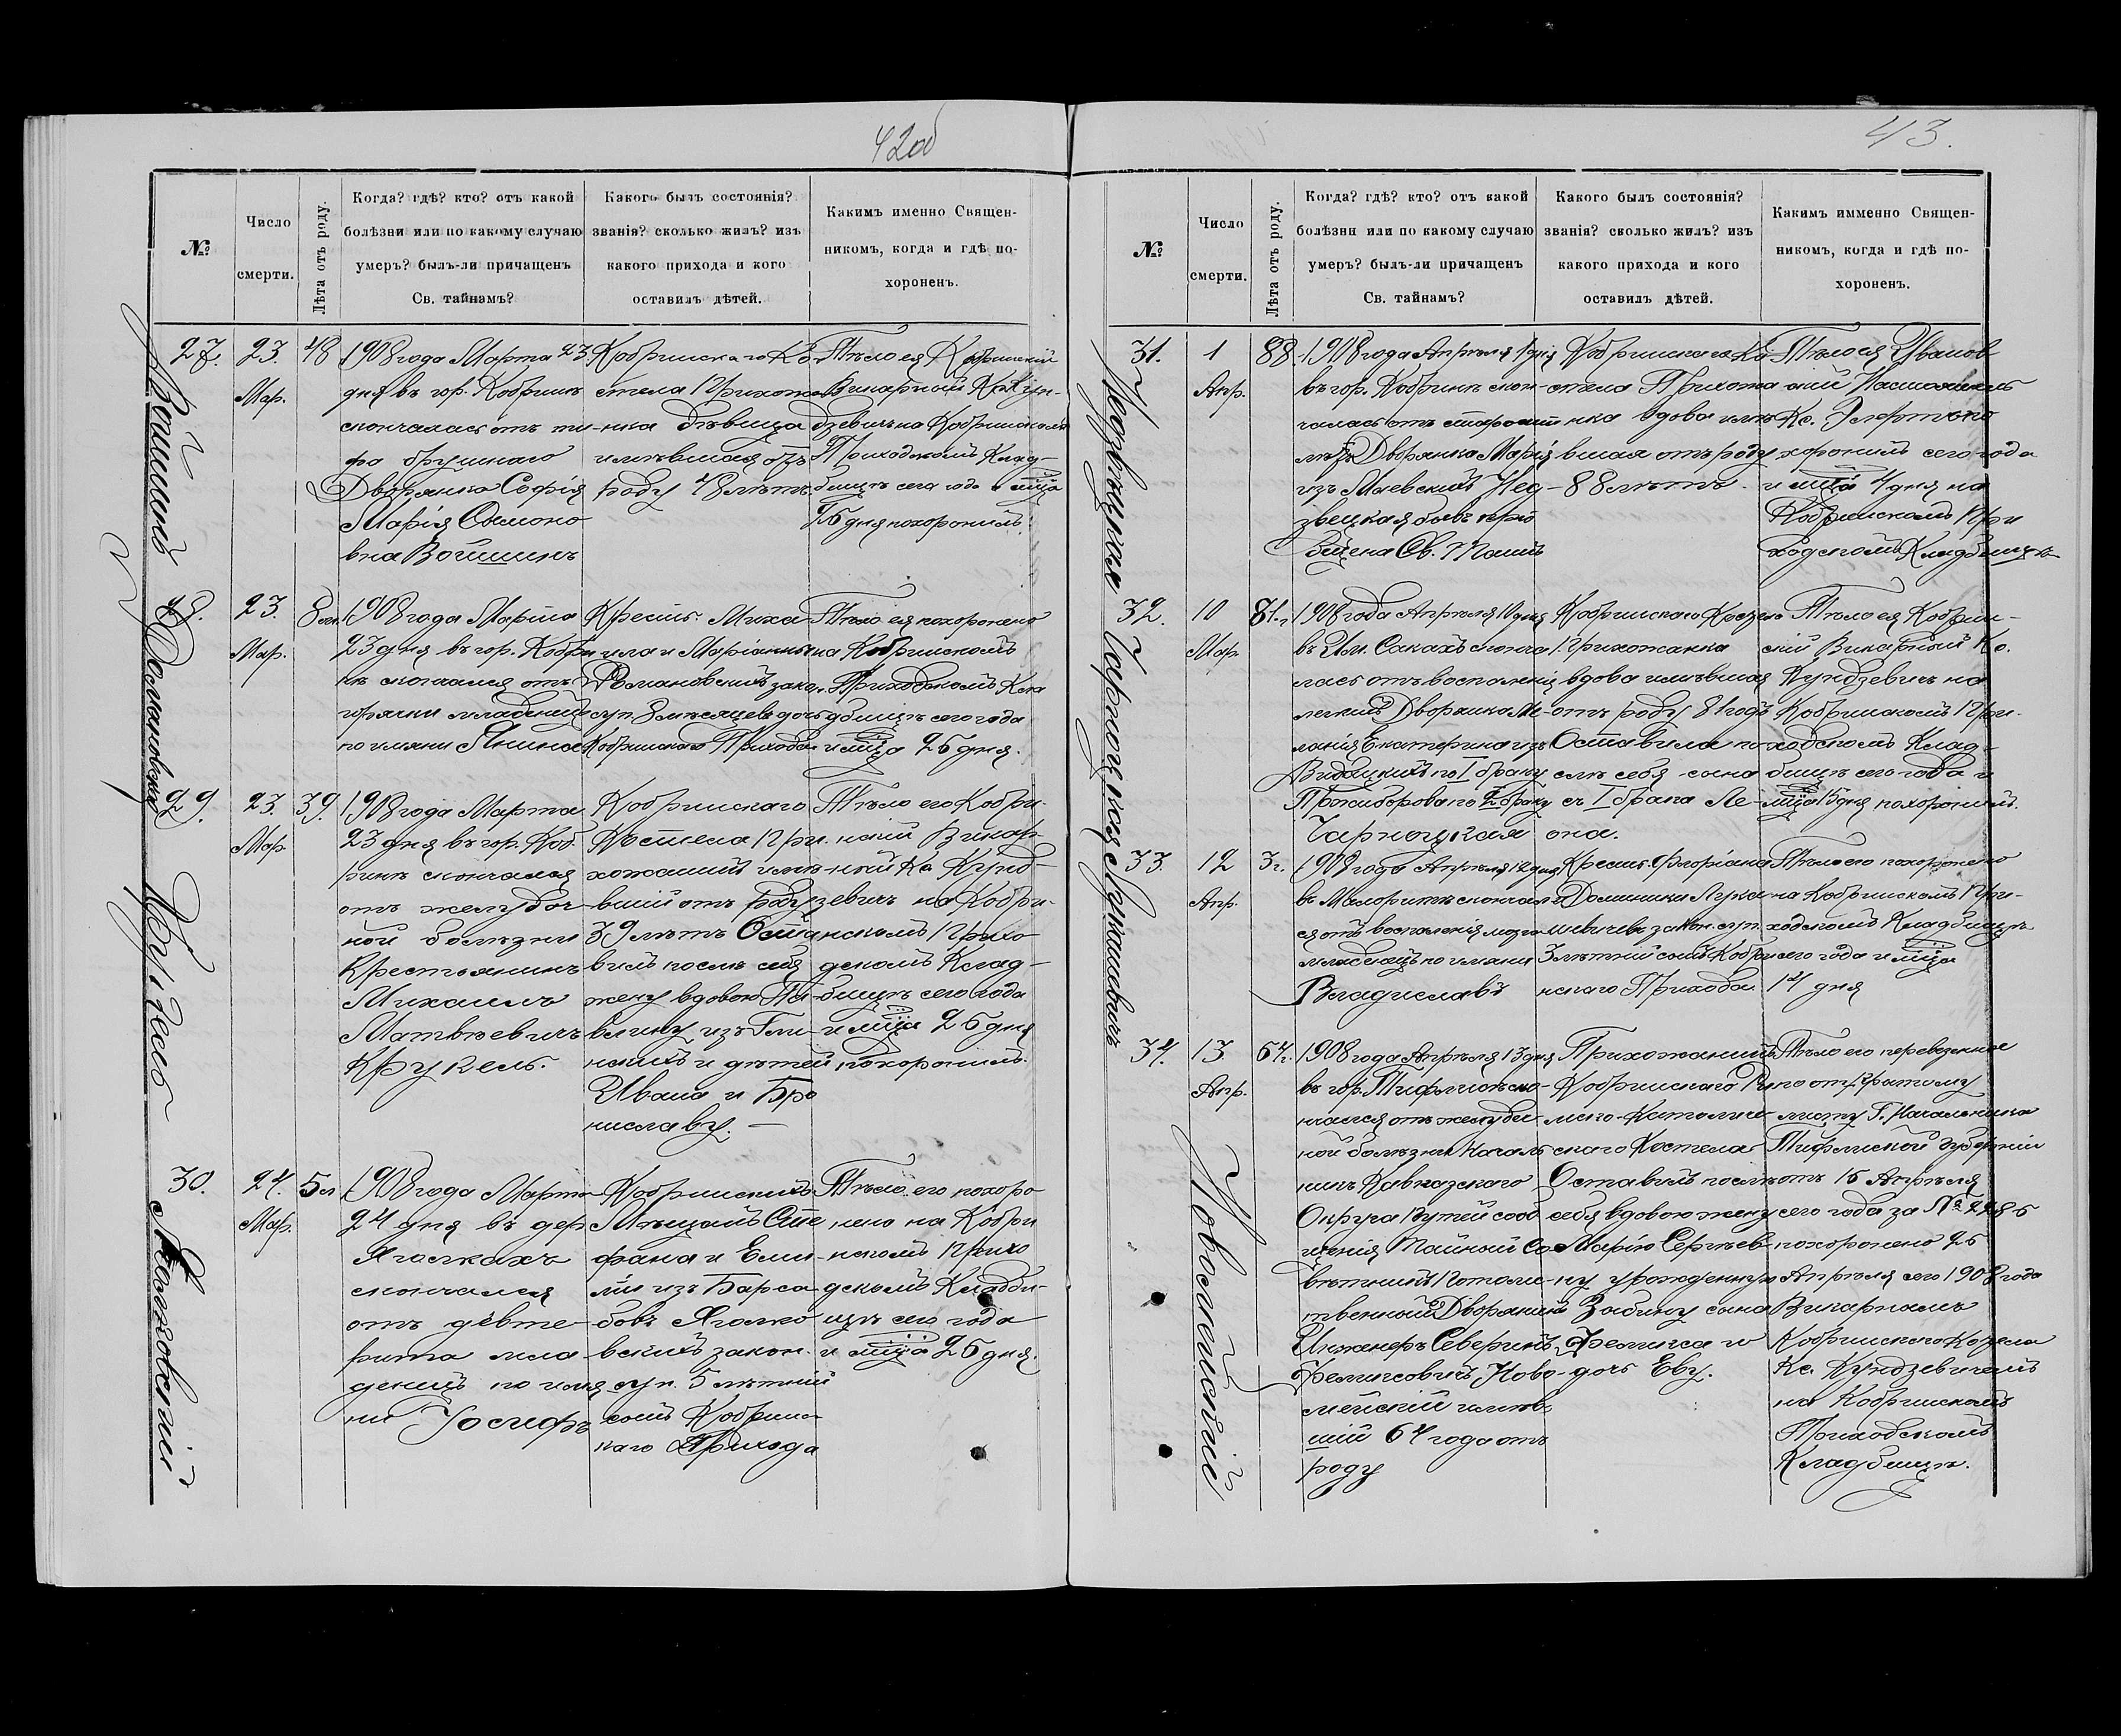 42об
№
Число
смерти.
Лѣта отъ роду.
Когда? гдѣ? кто? отъ какой
болѣзни или по какому случаю
умеръ? былъ-ли причащенъ
Св. тайнамъ?
Какого былъ состоянія?
званія? сколько жилъ? изъ
какого прихода и кого
оставилъ дѣтей.
Какимъ именно Священ-
никомъ, когда и гдѣ по-
хороненъ.
Войшинъ
27.
23.
Мар.
48
1908 года Марта 23
дня въ гор. Кобринѣ
скончалась отъ ти-
фа брушнаго
Дворянка Софія
Марія
вна Войшинъ
Кобринскаго Ко-
стела Прихожа-
нка дѣвица
имѣвшая отъ
роду 48 лѣтъ.
Тѣло ея Кобринскій
Викарный Кс. Кун-
дзевичъ на Кобринскомъ
Приходскомъ Клад-
бищѣ сего года и мца
25 дня похоронилъ.
Романовска
28.
23.
Мар.
8 м.
1908 года Марта
23 дня въ гор. Кобри
нѣ скончался отъ
горячки младенецъ
по имяни Янина
Крест. Миха
ила и Маріанны
Романовскихъ закон.
суп. 8 мѣсяцевъ дочь
Кобринскаго Прихода
Тѣло ея похоронено
на Кобринскомъ
Приходскомъ Кла
дбищѣ сего года
и мца 25 дня.
Крукель
29.
23.
Мар.
39.
1908 года Марта
23 дня въ гор. Коб
ринѣ скончался
отъ желудоч-
ной болѣзни
Крестьянинъ
Михаилъ
Матвѣевичъ
Крукель.
Кобринскаго
Костела При-
хожанинъ имѣ-
вшій отъ роду
39 лѣтъ Оста
вилъ послѣ себя
жену вдовою Па-
влину изъ Гли-
нскихъ и дѣтей
Ивана и Бро
ниславу. —
Тѣло его Кобри-
нскій Викар-
ный Кс. Кунд-
зевичъ на Кобри-
нскомъ Прихо
дскомъ Клад-
бищѣ сего года
и мца 25 дня
похоронилъ.
30.
24.
Мар.
5 л.
1908 года Марта
24 дня въ дер
Яголкахъ
скончался
отъ дёвте-
рита мла
денецъ по имя
ни Іосифъ
Кобринскихъ
Мѣщанъ Сте
фана и Еми-
ліи изъ Барса
бовъ Яголко
вскихъ закон.
суп. 5 лѣтній
сынъ Кобрин-
скаго Прихода
Тѣло его похоро
нено на Кобри
нскомъ Прихо
дскомъ Кладби-
щѣ сего года
и мца 25 дня.
43.
№
Число
смерти.
Лѣта отъ роду.
Когда? гдѣ? кто? отъ какой
болѣзни или по какому случаю
умеръ? былъ-ли причащенъ
Св. тайнамъ?
Какого былъ состоянія?
званія? сколько жилъ? изъ
какого прихода и кого
оставилъ дѣтей.
Какимъ имменно Священ-
никомъ, когда и гдѣ по-
хороненъ.
31.
1
Апр.
88.
1908 года Апрѣля 1 дня
въ гор. Кобринѣ скон-
чалась отъ старости
лѣтъ Дворянка Марія
изъ Маевскихъ Нед-
звецкая бывъ прі
бщена Св. Таинъ
Кобринскаго Ко
стела Прихожа
нка вдова имѣ
вшая отъ роду
88 лѣтъ.
Тѣло ея Иванов
скій Настоятель
Кс.
хоронилъ сего года
и мца 4 дня на
Кобринскомъ При
ходскомъ Кладбищѣ
Чарноцкая
32.
10
Мар
81.
1908 года Апрѣля 10 дня
въ Им. Сакахъ сконча
лась отъ воспаленія
легкихъ Дворянка Ме-
ланія Екатерина изъ
Видацкихъ по I браку
по 2 браку
Чарноцкая
Кобринскаго
Прихожанка
вдова имѣвшая
отъ роду 81 годъ
Оставила по
слѣ себя сына
съ I брака Ле-
она.
Тѣло ея Кобрин-
скій Викарный Кс.
Кундзевичъ на
Кобринскомъ При-
ходскомъ Клад-
бищѣ сего года и
мца 15 дня похоронилъ.
Лукашевичъ
33.
12
Апр.
3 г.
1908 года Апрѣля 12 дня
въ Малоритѣ скончал
ся отъ воспаленія мозга
младенецъ по имяни
Владиславъ
Крест. Флоріана
и Доминики Лука
шевичевъ закон. суп.
3 лѣтній сынъ Кобри
нскаго Прихода
Тѣло его похоронено
на Кобринскомъ При-
ходскомъ Кладбищѣ
сего года и мца
14 дня
Новомейскій
34.
13
Апр.
64 г.
1908 года Апрѣля 13 дня
въ гор. Тифлисѣ ско-
нчался отъ желудо
ной болѣзни Началь
никъ Кавказского
Округа Путей сооб
щенія Тайный Со-
вѣтникъ Потомс-
твенный Дворянинъ
Инженеръ Северинъ
Феликсовичъ Ново-
мейскій имѣв
шій 64 года отъ
роду
Прихожанинъ
Кобринскаго Ри
мско-Католиче
скаго Костела
Оставилъ послѣ
себя вдовою жену
Марію Сергѣев-
ну урожденную
Забину сына
Феликса и
дочь Еву.
Тѣло его перевезенное
по открытому
листу Г. Начальника
Тифлиской Губерніи
отъ 15 Апрѣля
сего года за №
похоронено 25
Апрѣля сего 1908 года
Викарнымъ
Кобринскаго Костела
Кс. Кундзевичемъ
на Кобринскомъ
Приходскомъ
Кладбищѣ.